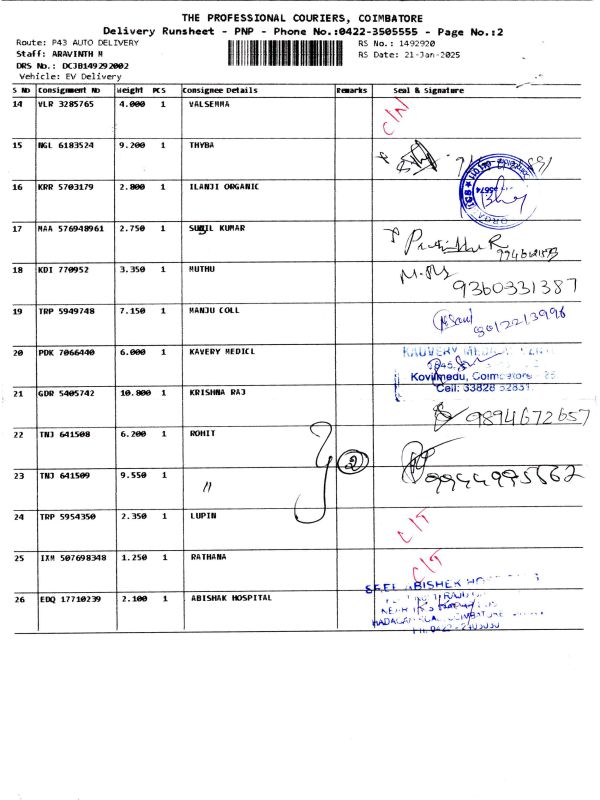 THE PROFESSIONAL COURIERS, COIMBATORE
Delivery Runsheet - PNP - Phone No.:0422-3505555 - Page No.:2
Route: P43 AUTO DELIVERY RS No.: 1492920
Staff: ARAVINTH M RS Date: 21-Jan-2025
DRS No.: DCJB149292002
Vehicle: EV Delivery
S No Consignment No Weight PCS Consignee Details Remarks Seal & Signature
14 VLR 3285765 4.000 1 VALSEMMA C/N
15 NGL 6183524 9.200 1 THYBA
16 KRR 5703179 2.800 1 ILANJI ORGANIC
17 MAA 576948961 2.750 1 SUNIL KUMAR
18 KDI 770952 3.350 1 MUTHU 9360331387
19 TRP 5949748 7.150 1 MANJU COLL 8012213996
20 PDK 7066440 6.000 1 KAVERY MEDICL KAUVERY
Kovilmedu, Coimbatore
Cell: 33828 52831
21 GDR 5405742 10.800 1 KRISHNA RAJ 9894672657
22 TNJ 641508 6.200 1 ROHIT 2
23 TNJ 641509 9.550 1 〃 9944995662
24 TRP 5954350 2.350 1 LUPIN C/T
25 IXM 507698348 1.250 1 RATHANA C/T
26 EDQ 17710239 2.100 1 ABISHAK HOSPITAL ABISHEK